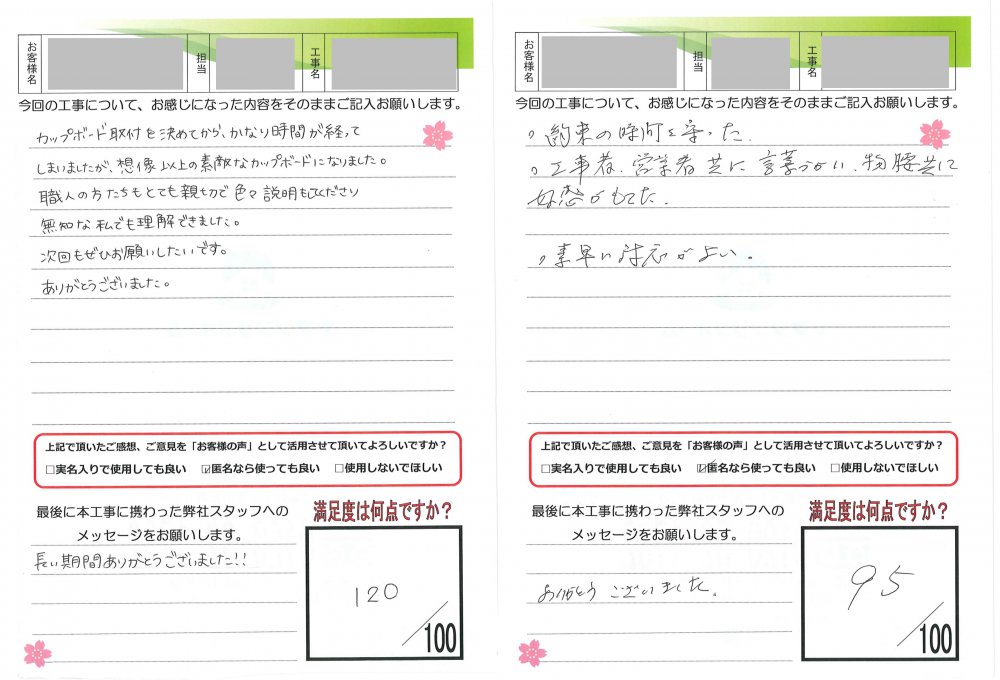 お客様名
担当
工事名
今回の工事について、お感じになった内容をそのままご記入お願いします。
カップボード取付を決めてから、かなり時間が経って
しまいましたが、想像以上の素敵なカップボードになりました。
職人の方たちもとても親切で色々説明も下さり
無知な私でも理解できました。
次回もぜひお願いしたいです。
ありがとうございました。
上記で頂いたご感想、ご意見を「お客様の声」として活用させて頂いてよろしいですか？
□実名入りで使用しても良い ☑匿名なら使っても良い □使用しないでほしい
最後に本工事に携わった弊社スタッフへの
メッセージをお願いします。
長い期間ありがとうございました!!
満足度は何点ですか？
120
/100
お客様名
担当
工事名
今回の工事について、お感じになった内容をそのままご記入お願いします。
約束の時間を守った.
工事者、営業者共に言葉づかい、物腰共に
好感がもてた.
素早い対応がよい。
上記で頂いたご感想、ご意見を「お客様の声」として活用させて頂いてよろしいですか？
□実名入りで使用しても良い ☑匿名なら使っても良い □使用しないでほしい
最後に本工事に携わった弊社スタッフへの
メッセージをお願いします。
ありがとうございました。
満足度は何点ですか？
95
/100